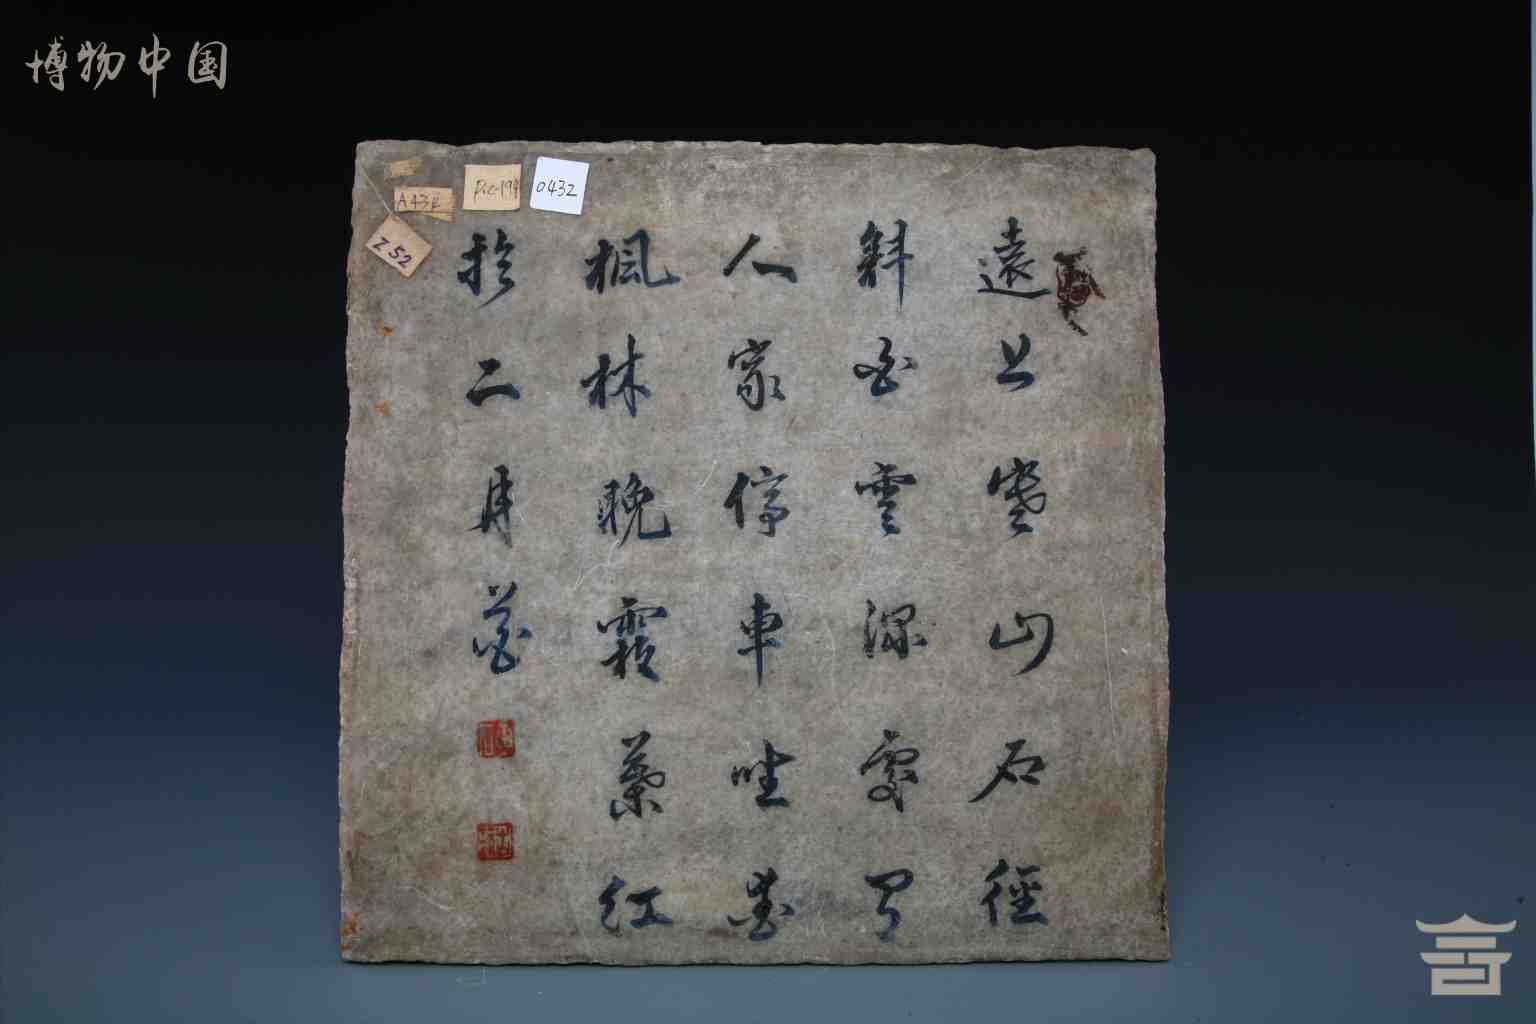 博物中国
A434
Z52
0432
遠上寒山石徑
斜白雲深處有
人家停車坐愛
楓林晚霜葉紅
於二月花